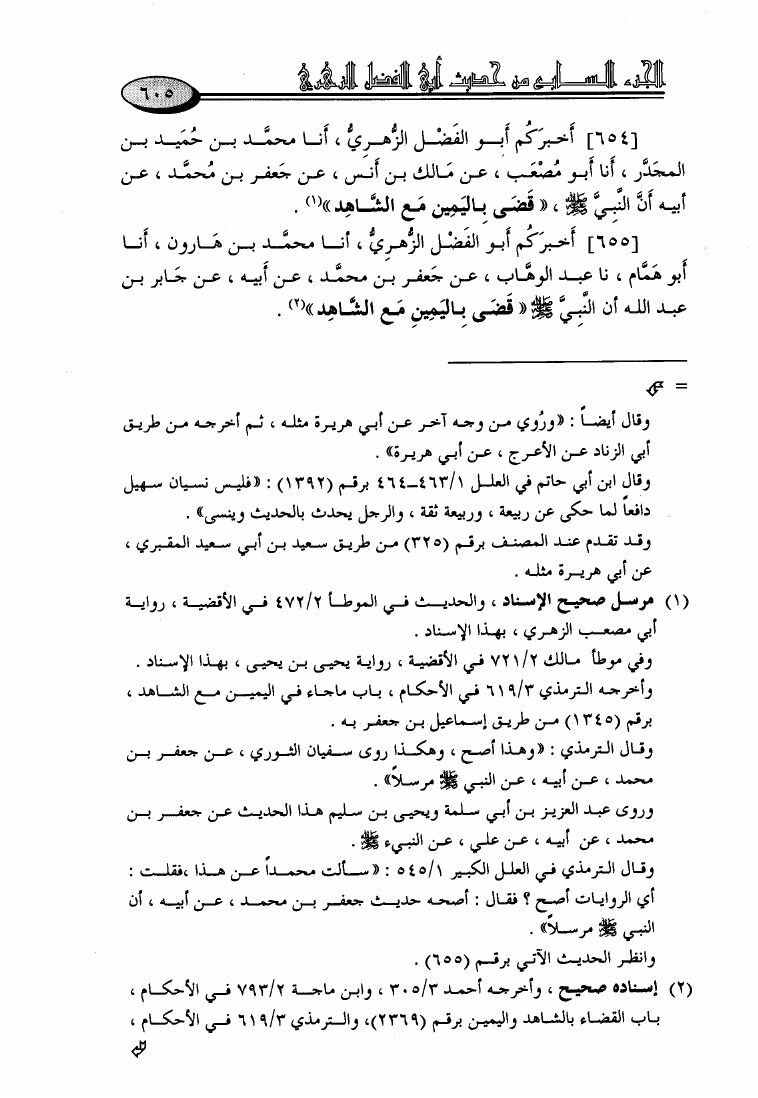 الجزء السابع من حديث أبي الفضل الزهري
٦٠٥
[٦٥٤] أَخبرَكُم أَبو الفَضْل الزُّهرِيُّ ، أَنا محمَّد بن حُمَيد بن
المجَدَّر ، أنا أَبو مُصْعَب ، عن مَالك بن أنس ، عن جَعفر بن مُحمَّد ، عن
أبيه أَنَّ النَّبيَّ ﷺ ، « قَضَى بِاليَمِينِ مَع الشَّاهد»(١) .
[٦٥٥] أَخبرَكُم أَبو الفَضْل الزُّهرِيُّ ، أَنا محمَّد بن هَارون ، أَنا
أَبو هَمَّام ، نا عبد الوهَّاب ، عن جَعفر بن محمَّد ، عن أَبيه ، عن جَابر بن
عبد الله أن النَّبيَّ ﷺ « قَضَى بِاليَمِينِ مَع الشَّاهِد»(٢) .
=
وقال أيضاً : «ورُوي من وجه آخر عن أبي هريرة مثله ، ثم أخرجه من طريق
أبي الزناد عن الأعرج ، عن أبي هريرة» .
وقال ابن أبي حاتم في العلل ٤٦٣/١-٤٦٤ برقم (١٣٩٢) : «فليس نسيان سهيل
دافعاً لما حكى عن ربيعة ، وربيعة ثقة ، والرجل يحدث بالحديث وينسى» .
وقد تقدم عند المصنف برقم (٣٢٥) من طريق سعيد بن أبي سعيد المقبري ،
عن أبي هريرة مثله .
(١) مرسل صحيح الإسناد ، والحديث في الموطأ ٤٧٢/٢ في الأقضية ، رواية
أبي مصعب الزهري ، بهذا الإسناد .
وفي موطأ مالك ٧٢١/٢ في الأقضية ، رواية يحيى بن يحيى ، بهذا الإسناد .
وأخرجه الترمذي ٦١٩/٣ في الأحكام ، باب ماجاء في اليمين مع الشاهد ،
برقم (١٣٤٥) من طريق إسماعيل بن جعفر به .
وقال الترمذي : «وهذا أصح ، وهكذا روى سفيان الثوري ، عن جعفر بن
محمد ، عن أبيه ، عن النبي ﷺ مرسلاً» .
وروى عبد العزيز بن أبي سلمة ويحيى بن سليم هذا الحديث عن جعفر بن
محمد ، عن أبيه ، عن علي ، عن النبيء ﷺ .
وقال الترمذي في العلل الكبير ٥٤٥/١ : «سألت محمداً عن هذا ،فقلت :
أي الروايات أصح ؟ فقال : أصحه حديث جعفر بن محمد ، عن أبيه ، أن
النبي ﷺ مرسلاً» .
وانظر الحديث الآتي برقم (٦٥٥) .
(٢) إسناده صحيح ، وأخرجه أحمد ٣٠٥/٣ ، وابن ماجة ٧٩٣/٢ في الأحكام ،
باب القضاء بالشاهد واليمين برقم (٢٣٦٩)، والترمذي ٦١٩/٣ في الأحكام ،